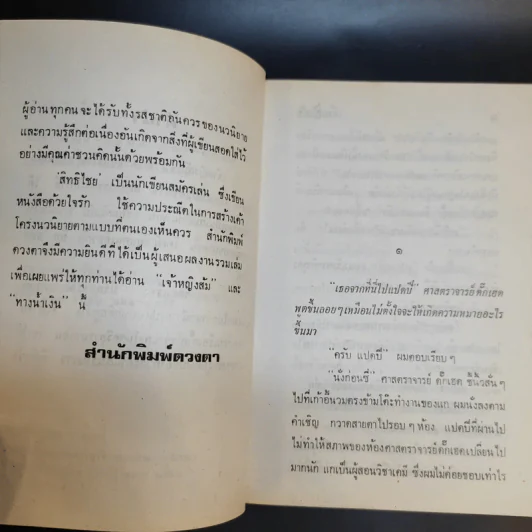 ผู้อ่านทุกคนจะได้รับทั้งรสชาติอันควรของนวนิยาย
และความรู้สึกต่อเนื่องอันเกิดจากสิ่งที่ผู้เขียนสอดใส่ไว้
อย่างมีคุณค่าชวนคิดนั้นด้วยพร้อมกัน
"สิทธิไชย" เป็นนักเขียนสมัครเล่น ซึ่งเขียน
หนังสือด้วยใจรัก ใช้ความประณีตในการสร้างเค้า
โครงนวนิยายตามแบบที่ตนเองเห็นควร สำนักพิมพ์
ดวงตาจึงมีความยินดีที่ได้เป็นผู้เสนอผลงานรวมเล่ม
เพื่อเผยแพร่ให้ทุกท่านได้อ่าน "เจ้าหญิงส้ม" และ
"ทางน้ำเงิน" นี้
สำนักพิมพ์ดวงตา
๑
"เธอจากที่นี่ไปแปดปี" ศาสตราจารย์ดั๊กเฮด
พูดขึ้นลอยๆเหมือนไม่ตั้งใจจะให้เกิดความหมายอะไร
ขึ้นมา
"ครับ แปดปี" ผมตอบเรียบๆ
"นั่งก่อนซี" ศาสตราจารย์ ดั๊กเฮด ชี้นิ้วสั้นๆ
ไปที่เก้าอี้นวมตรงข้ามโต๊ะทำงานของแก ผมนั่งลงตาม
คำเชิญ กวาดสายตาไปรอบๆห้อง แปดปีที่ผ่านไป
ไม่ทำให้สภาพของห้องศาสตราจารย์ดั๊กเฮดเปลี่ยนไป
มากนัก แกเป็นผู้สอนวิชาเคมี ซึ่งผมไม่ค่อยชอบเท่าไร